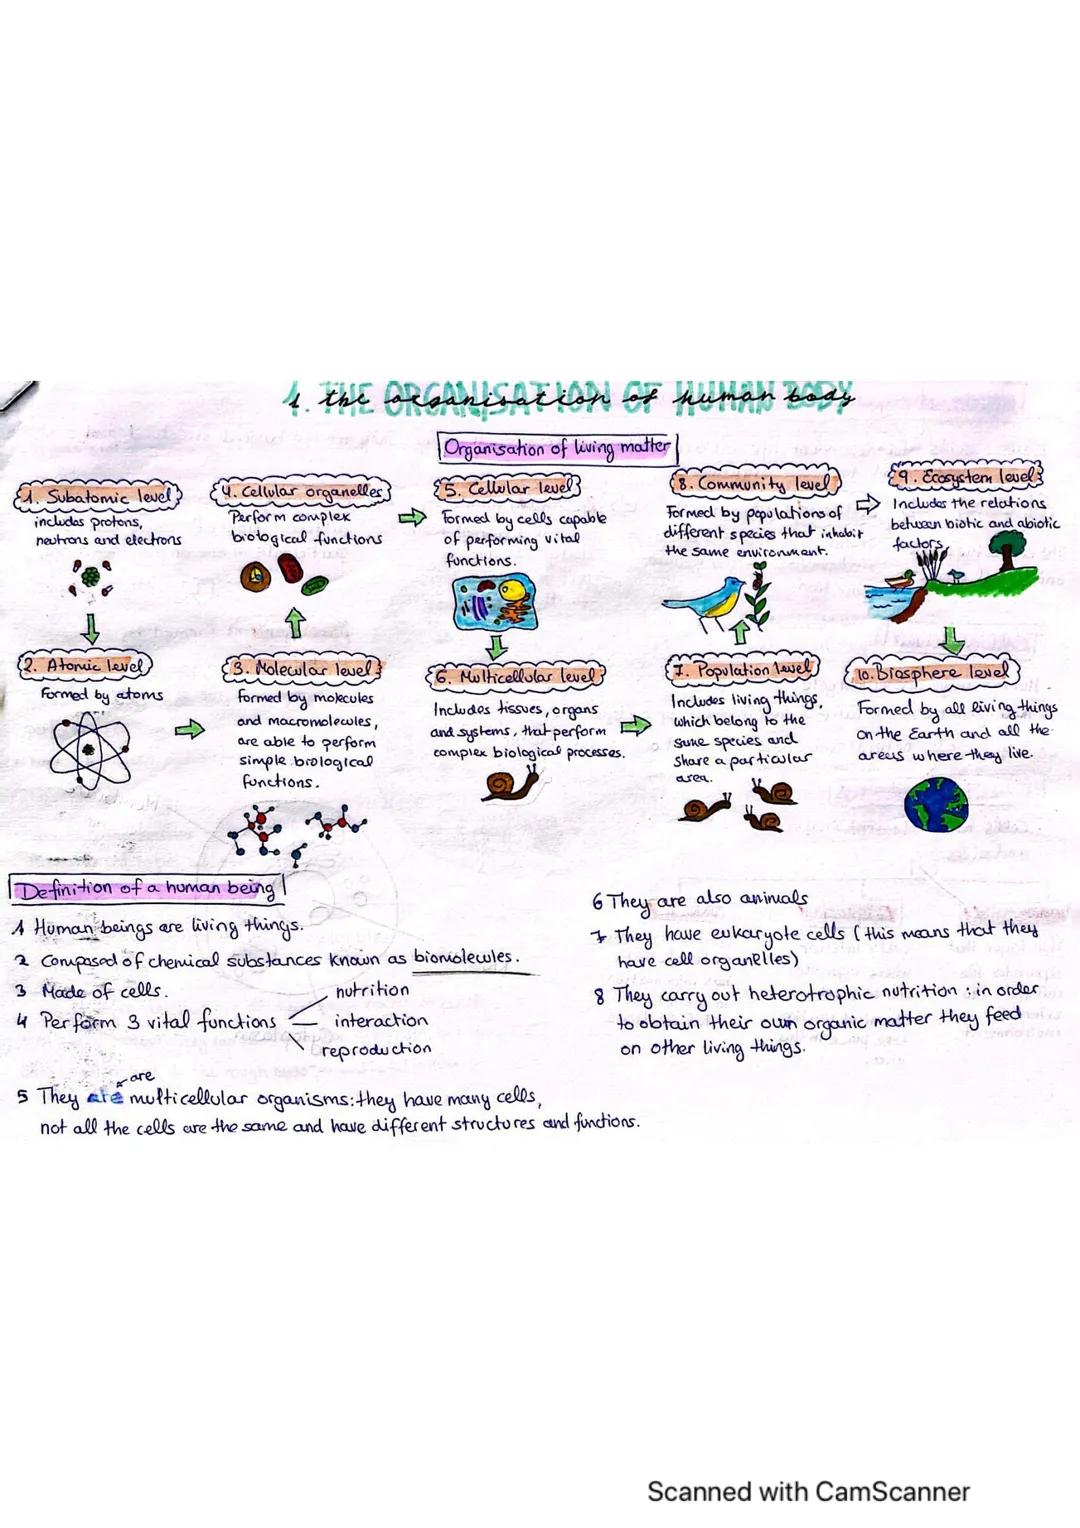 1. the organisation of human body
Organisation of living matter
1. Subatomic level
includes protons,
neutrons and electrons
2. Atomic level
Formed by atoms
3. Molecular level
Formed by molecules
and macromolecules,
are able to perform
simple biological
functions.
4. Cellular organelles
Perform complex
biological functions
5. Cellular level
Formed by cells capable
of performing vital
functions.
6. Multicellular level
Includes tissues, organs
and systems, that perform
complex biological processes.
7. Population level
Includes living things,
which belong to the
same species and
share a particular
area.
8. Community level
Formed by populations of
different species that inhabit
the same environment.
9. Ecosystem level
Includes the relations
between biotic and abiotic
factors
10. Biosphere level
Formed by all living things
on the Earth and all the
areas where they live.
Definition of a human being
1 Human beings are living things.
2 Composed of chemical substances known as biomolecules.
3 Made of cells.
4 Perform 3 vital functions
nutrition
interaction
reproduction
are
5 They are multicellular organisms: they have many cells,
not all the cells are the same and have different structures and functions.
6 They are also animals
7 They have eukaryote cells (this means that they
have cell organelles)
8 They carry out heterotrophic nutrition : in order
to obtain their own organic matter they feed
on other living things.
Scanned with CamScanner